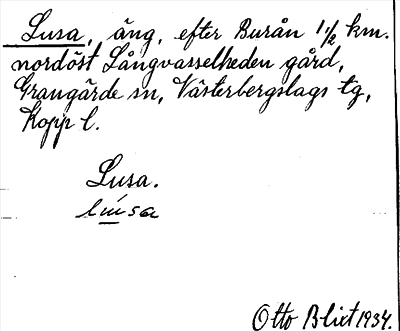 Lusa, äng, efter Burån 1 1/2 km.
nordöst Långvasselheden gård,
Grangärde sn, Västerbergslags tg,
Kopp l.
Lusa.
lusa
Otto Blixt 1934.